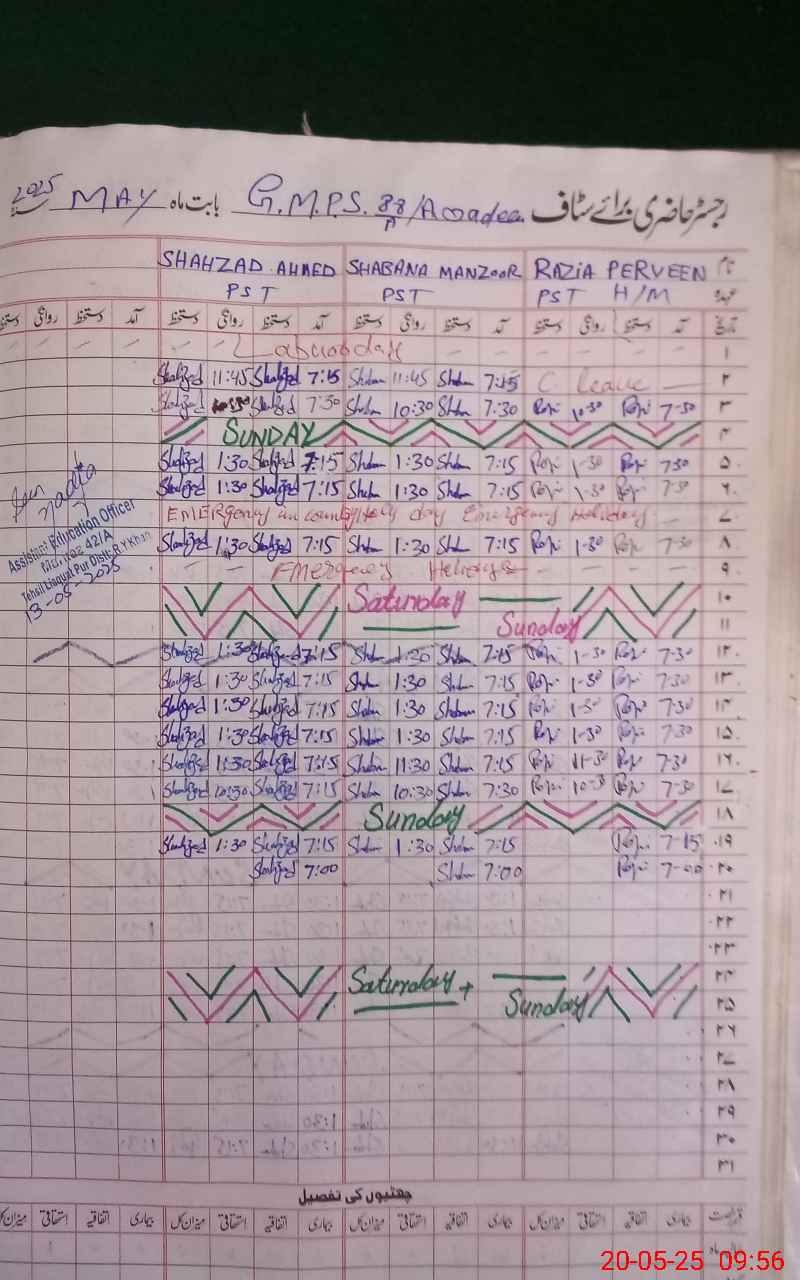 رجسٹر حاضری برائے سٹاف G.M.P.S. 88/A بابت ماہ MAY 2025
RAZIA PERVEEN SHABANA MANZOOR SHAHZAD AHMED نام
PST H/M PST PST عہدہ
تاریخ آمد دستخط روانگی دستخط آمد دستخط روانگی دستخط آمد دستخط روانگی دستخط آمد دستخط روانگی دستخط
۱
Shahzad 11:45 Shahzad 7:15 Shaban 11:45 Shaban 7:15 C. leave ۲
Shahzad Shahzad 7:30 Shaban 10:30 Shaban 7:30 10-30 7-30 ۳
SUNDAY ۴
Shahzad 1:30 Shahzad 7:15 Shaban 1:30 Shaban 7:15 1-30 7-30 ۵
Shahzad 1:30 Shahzad 7:15 Shaban 1:30 Shaban 7:15 1-30 7-30 ۶
EMERgency in day Emergency Holiday ۷
Shahzad 1:30 Shahzad 7:15 Shaban 1:30 Shaban 7:15 1-30 7-30 ۸
Emergency ۹
Saturday ۱۰
Sunday ۱۱
Shahzad 1:30 Shahzad 7:15 Shaban 1:30 Shaban 7:15 1-30 7-30 ۱۲
Shahzad 1:30 Shahzad 7:15 Shaban 1:30 Shaban 7:15 1-30 7-30 ۱۳
Shahzad 1:30 Shahzad 7:15 Shaban 1:30 Shaban 7:15 1-30 7-30 ۱۴
Shahzad 1:30 Shahzad 7:15 Shaban 1:30 Shaban 7:15 1-30 7-30 ۱۵
Shahzad 11:30 Shahzad 7:15 Shaban 11:30 Shaban 7:15 11-30 7-30 ۱۶
Shahzad 10:30 Shahzad 7:15 Shaban 10:30 Shaban 7:30 10-30 7-30 ۱۷
Sunday ۱۸
Shahzad 1:30 Shahzad 7:15 Shaban 1:30 Shaban 7:15 7-15 ۱۹
Shahzad 7:00 Shaban 7:00 7-00 ۲۰
۲۱
۲۲
۲۳
Saturday + ۲۴
Sunday ۲۵
۲۶
۲۷
۲۸
۲۹
۳۰
۳۱
Seen
Assistant Education Officer
42/A
Tehsil Liaquat Pur Distt: R.Y Khan
13-05-2025
چھٹیوں کی تفصیل
بیماری اتفاقیہ استحقاقی میزان کل بیماری اتفاقیہ استحقاقی میزان کل بیماری اتفاقیہ استحقاقی میزان کل بیماری اتفاقیہ استحقاقی میزان کل
20-05-25 09:56